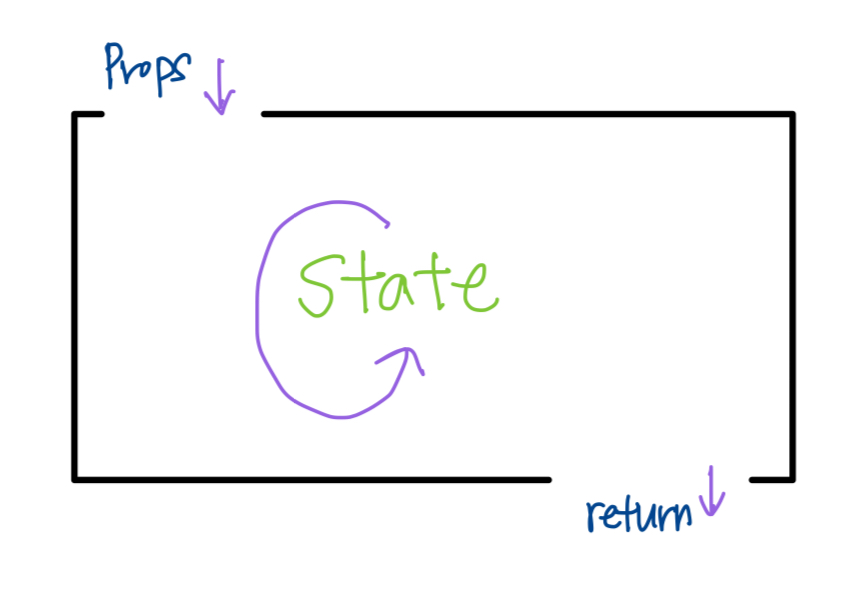 Props
State
return